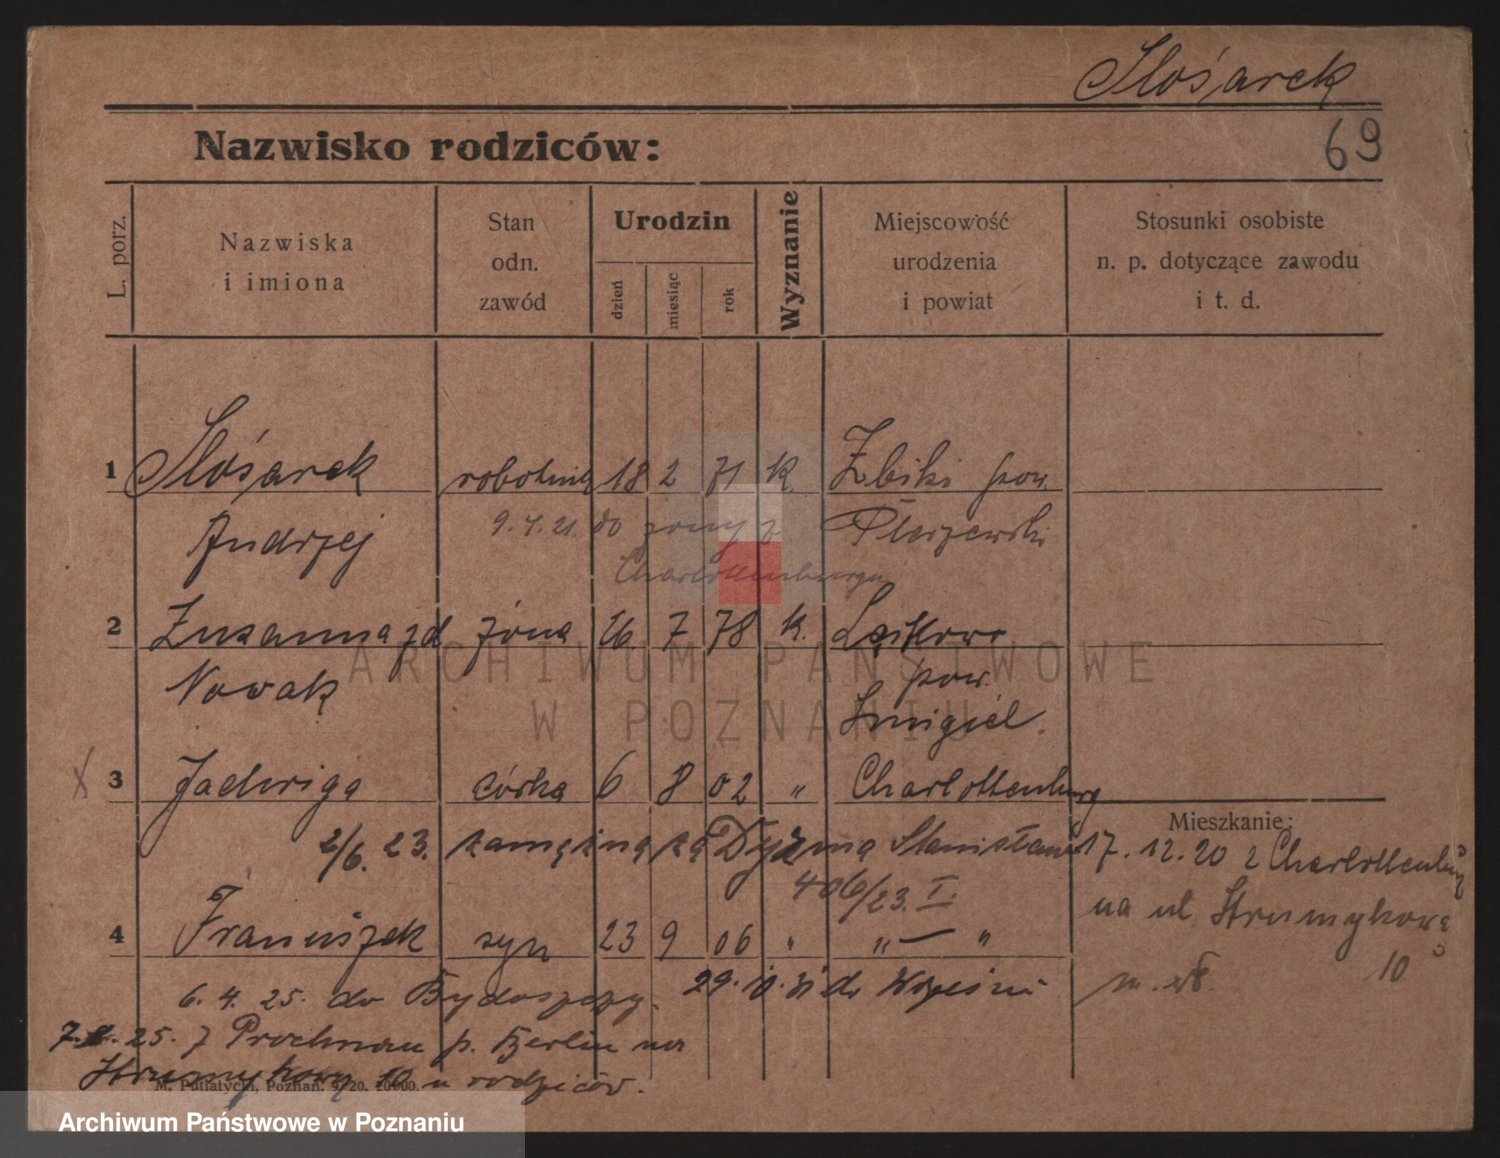 Slósarek
69
Nazwisko rodziców:
L. porz.
Nazwiska
i imiona
Stan
odn.
zawód
Urodzin
dzień
miesiąc
rok
Wyznanie
Miejscowość
urodzenia
i powiat
Stosunki osobiste
n. p. dotyczące zawodu
i t. d.
1 Slósarek robotnik 18 2 71 k. Żbiki pow.
Andrzej Pleszewski
9.4.21. do żony z
Charlottenburga
2 Zuzanna zd żona 26 7 78 k.
Nowak pow.
Śmigiel
3 Jadwiga córka 6 8 02 " Charlottenburg
2/6. 23. zamężna za Dyzma Stanisław
406/23. I.
Mieszkanie:
17.12.20 z Charlottenburg
na ul Strumykowa
10
4 Franciszek syn 23 9 06 " " — "
6. 4. 25. do Bydoszczy. 29. do Wrześni
25. z Prochnau p. Berlin na
Strumykowy 10 u rodziców.
M. Putiatycki, Poznań. 9. 20. 20000.
ARCHIWUM PAŃSTWOWE
W POZNANIU
Archiwum Państwowe w Poznaniu